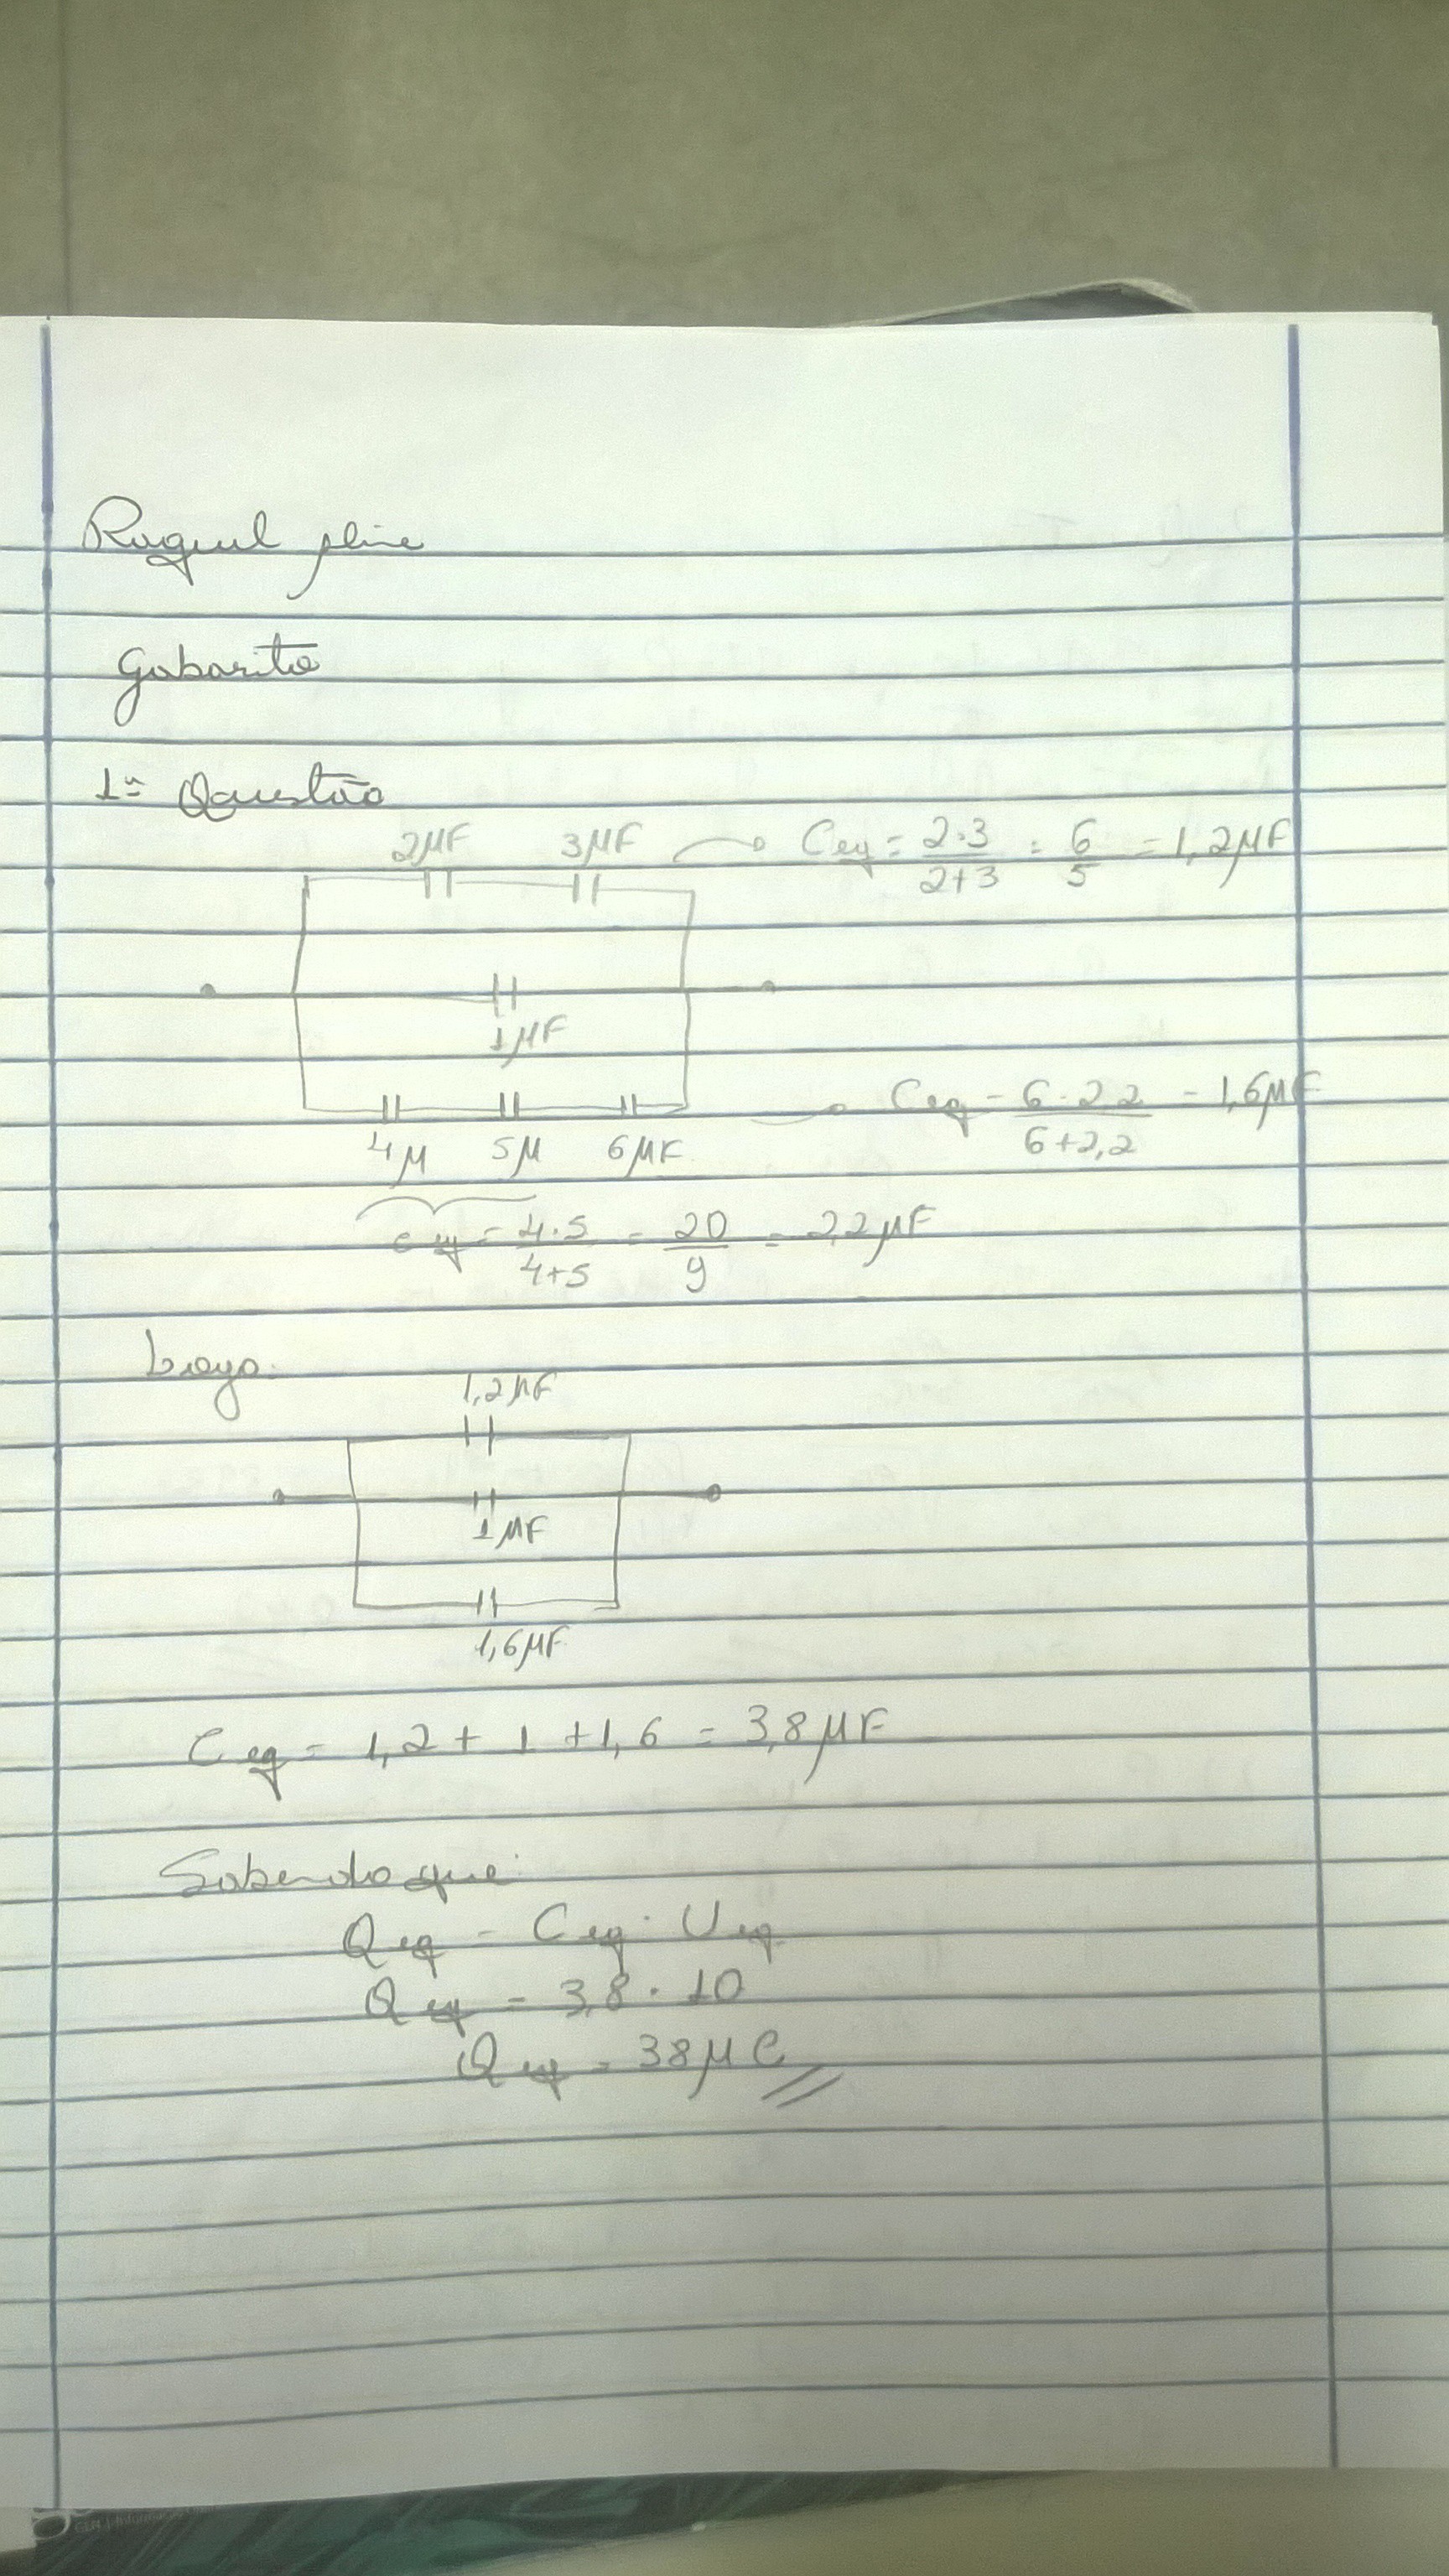 Raquel
Gabarito
1ª Questão
2µF 3µF Ceq = 2·3 / 2+3 = 6 / 5 = 1,2µF
1µF
Ceq = 6·2,2 / 6+2,2 = 1,6µF
4µ 5µ 6µF
Ceq = 4·5 / 4+5 = 20 / 9 = 2,2µF
Logo:
1,2µF
1µF
1,6µF
Ceq = 1,2 + 1 + 1,6 = 3,8µF
Sabendo que:
Qeq = Ceq · Ueq
Qeq = 3,8 · 10
Qeq = 38µC